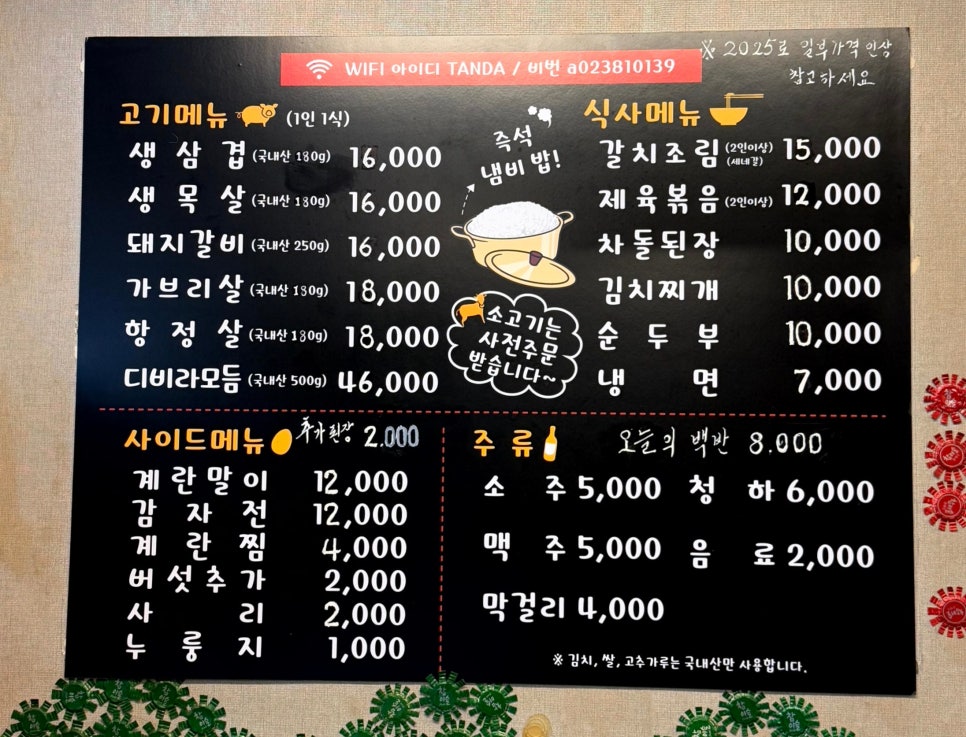 WIFI 아이디 TANDA / 비번 a023810139
※ 2025로 일부가격 인상
참고하세요
고기메뉴 (1인 1식)
생삼겹 (국내산 180g) 16,000
생목살 (국내산 180g) 16,000
돼지갈비 (국내산 250g) 16,000
가브리살 (국내산 180g) 18,000
항정살 (국내산 180g) 18,000
디비라모듬 (국내산 500g) 46,000
즉석
냄비 밥!
소고기는
사전주문
받습니다~
식사메뉴
갈치조림 (2인이상) (세네갈) 15,000
제육볶음 (2인이상) 12,000
차돌된장 10,000
김치찌개 10,000
순두부 10,000
냉면 7,000
사이드메뉴 추가된장 2,000
계란말이 12,000
감자전 12,000
계란찜 4,000
버섯추가 2,000
사리 2,000
누룽지 1,000
주류 오늘의 백반 8,000
소주 5,000 청하 6,000
맥주 5,000 음료 2,000
막걸리 4,000
※ 김치, 쌀, 고추가루는 국내산만 사용합니다.